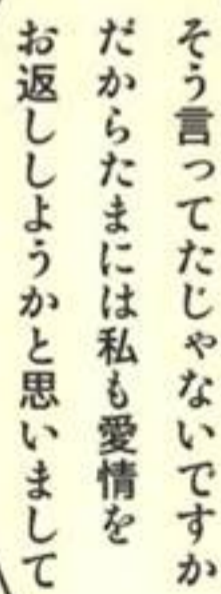 そう言ってたじゃないですか
だからたまには私も愛情を
お返ししようかと思いまして